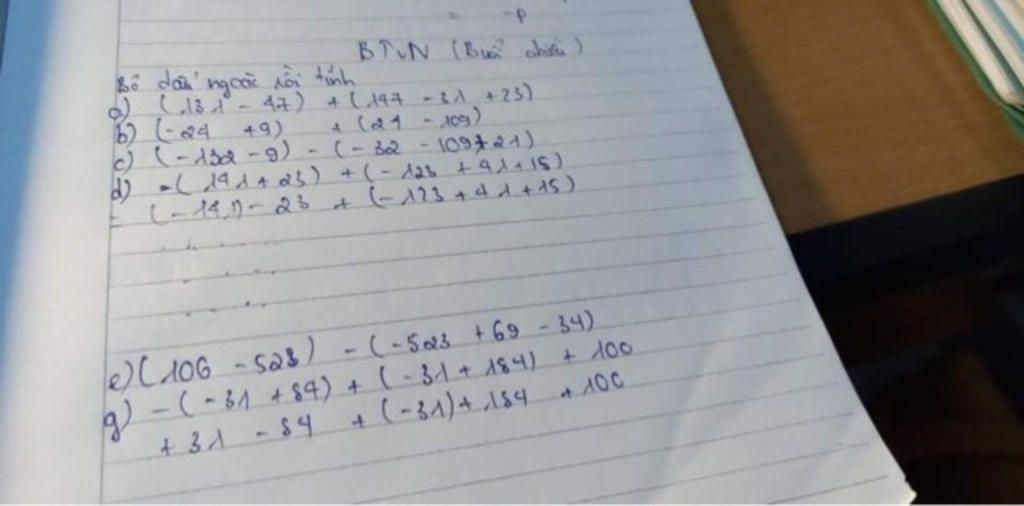 BTVN (Buổi chiều)
Bỏ dấu ngoặc rồi tính
a) (131 - 47) + (147 - 31 + 23)
b) (-24 + 9) + (24 - 109)
c) (-132 - 9) - (-32 - 109 + 21)
d) -(141 + 23) + (-123 + 41 + 15)
= (-141) - 23 + (-123 + 41 + 15)
e) (106 - 523) - (-523 + 69 - 34)
g) -(-31 + 84) + (-31 + 184) + 100
+ 31 - 84 + (-31) + 184 + 100